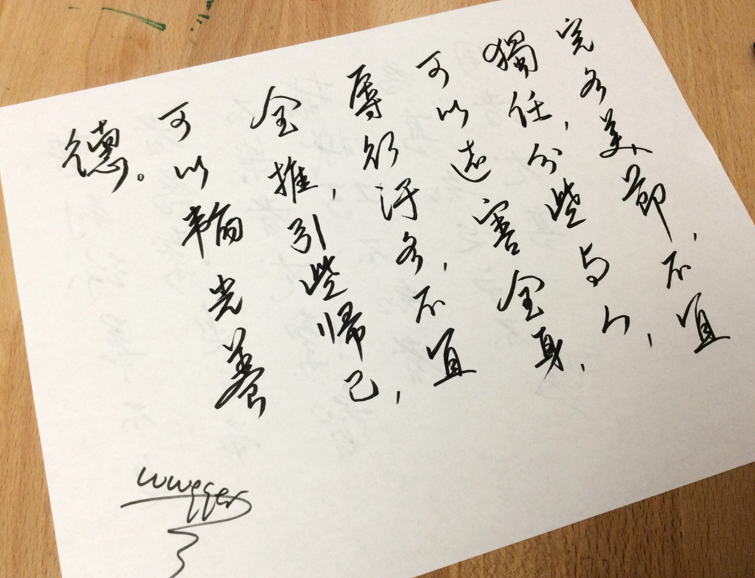 完名美節，不宜
獨任，分些與人，
可以遠害全身，
辱行汙名，不宜
全推，引些歸己，
可以韜光養
德。
wwggers